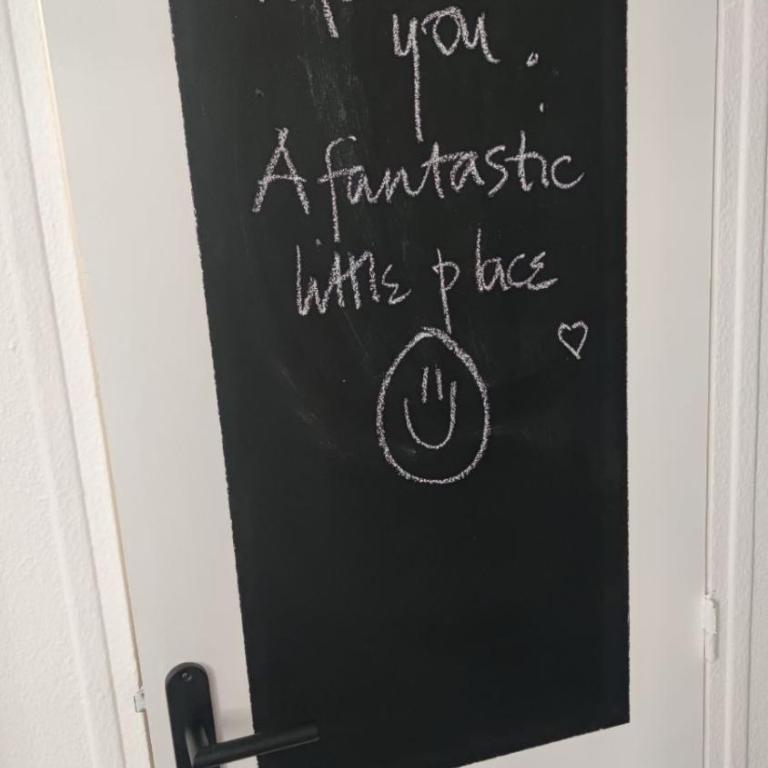 you.
A fantastic
little place